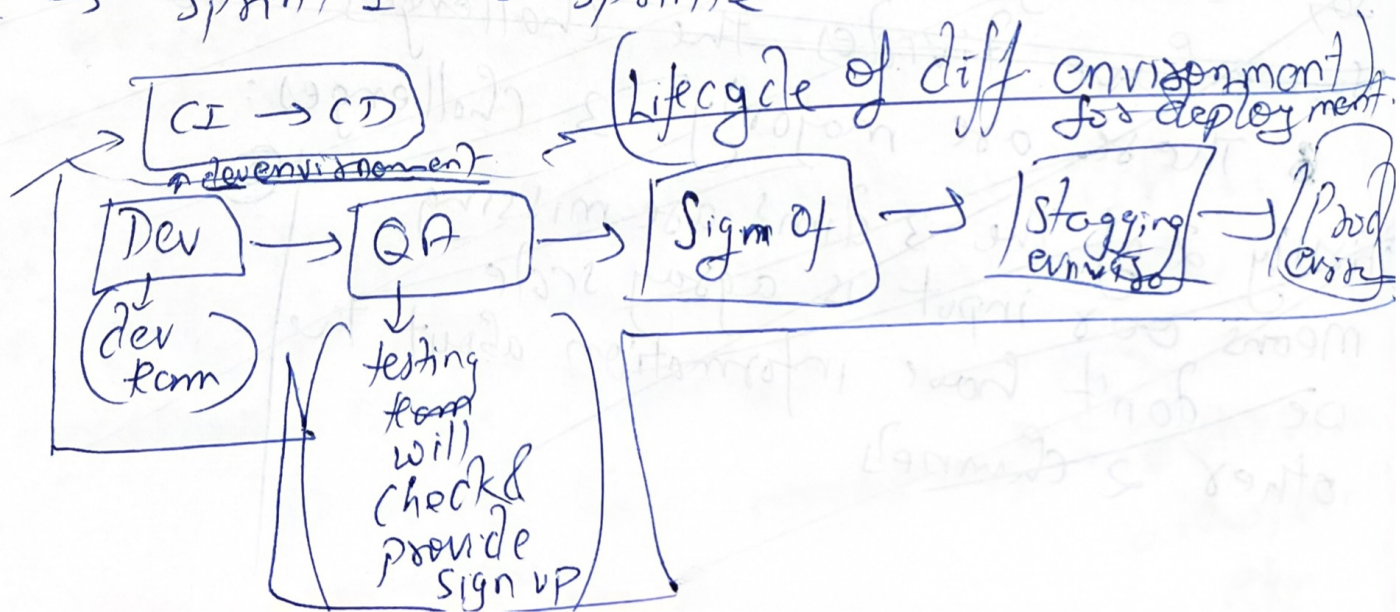 CI → CD
Lifecycle of diff environment
for deployment.
dev environment
Dev → QA → Sign Of → Stagging → Prod
dev
team
testing
team
will
check &
provide
sign up